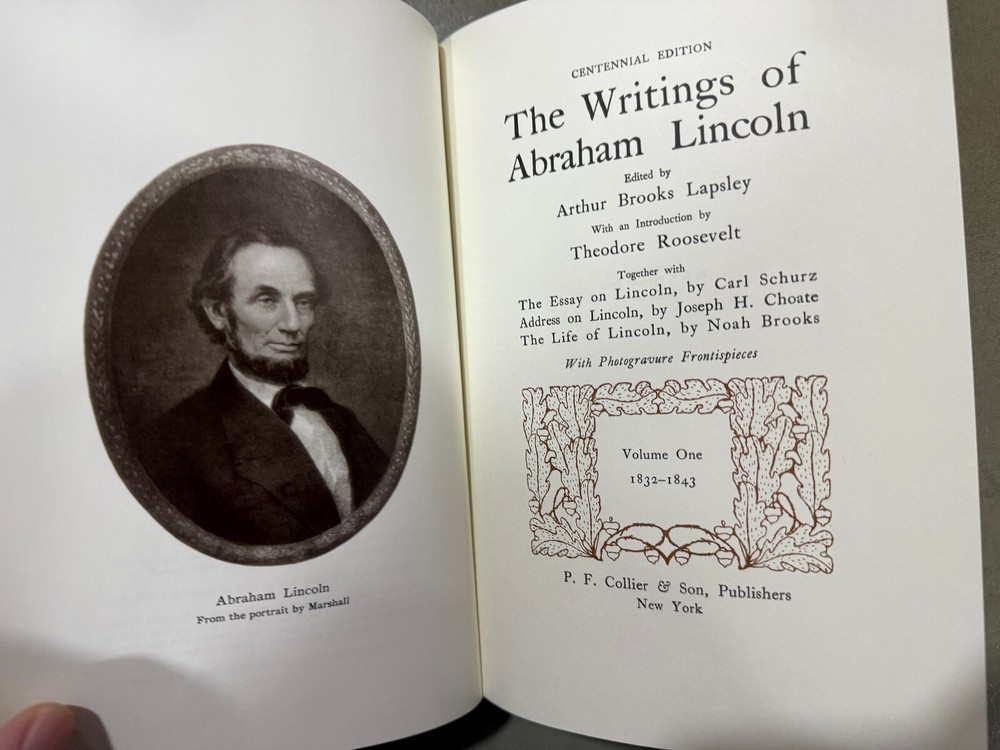 Abraham Lincoln
From the portrait by Marshall
CENTENNIAL EDITION
The Writings of
Abraham Lincoln
Edited by
Arthur Brooks Lapsley
With an Introduction by
Theodore Roosevelt
Together with
The Essay on Lincoln, by Carl Schurz
Address on Lincoln, by Joseph H. Choate
The Life of Lincoln, by Noah Brooks
With Photogravure Frontispieces
Volume One
1832–1843
P. F. Collier & Son, Publishers
New York